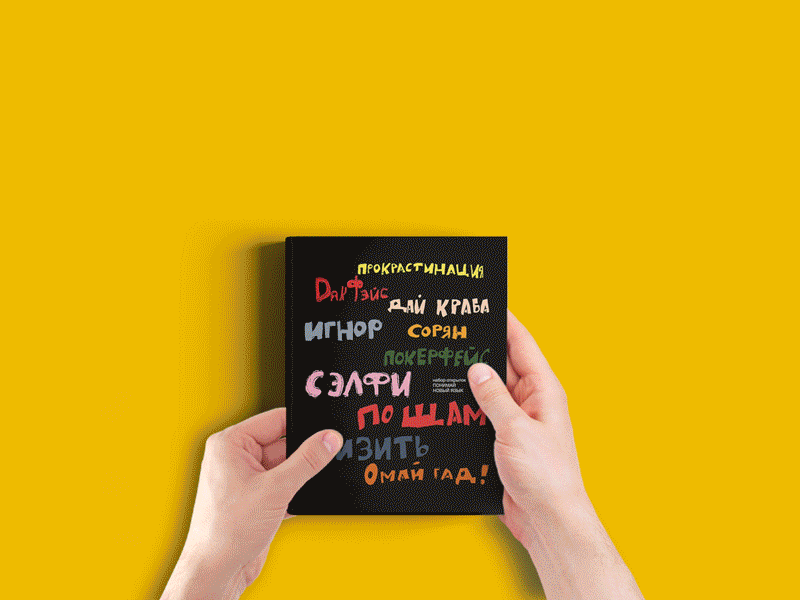 ПРОКРАСТИНАЦИЯ
ДАК ФЭЙС
ДАЙ КРАБА
ИГНОР СОРЯН
ПОКЕРФЕЙС
СЭЛФИ
набор открыток
ПОНИМАЙ
НОВЫЙ ЯЗЫК
ПО ЩАМ
ОМАЙ ГАД!